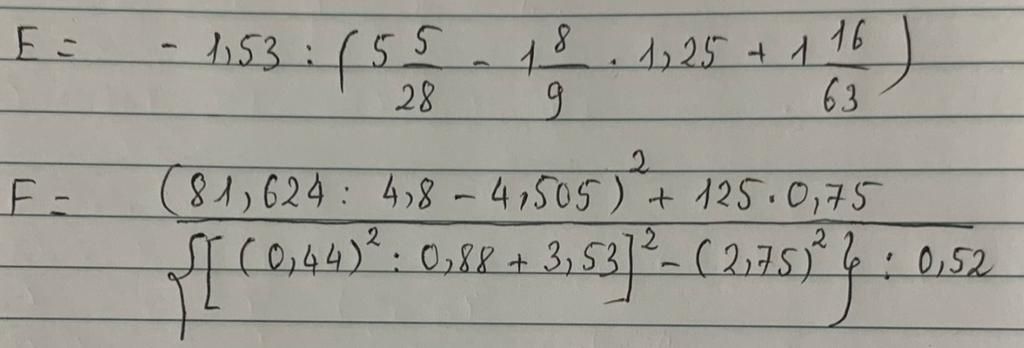 E = - 1,53 : (5 5/28 - 1 8/9 . 1,25 + 1 16/63)
F = (81,624 : 4,8 - 4,505)² + 125 . 0,75
{[(0,44)² : 0,88 + 3,53]² - (2,75)²} : 0,52